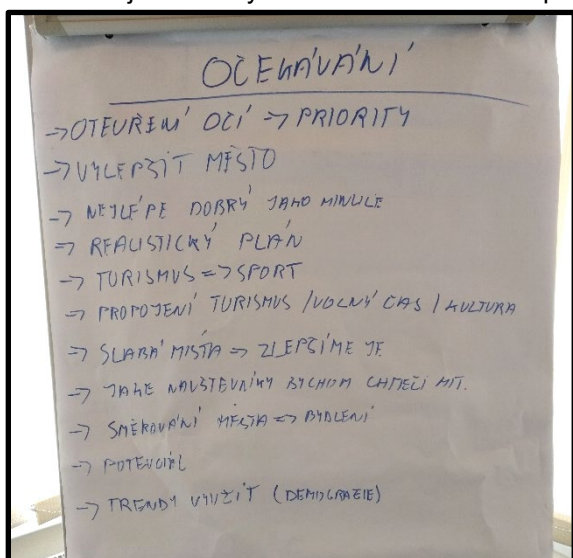 OČEKÁVÁNÍ
→ OTEVŘENÍ OČÍ → PRIORITY
→ VYLEPŠIT MĚSTO
→ NEJLÉPE DOBRÝ JAKO MINULE
→ REALISTICKÝ PLÁN
→ TURISMUS => SPORT
→ PROPOJENÍ TURISMUS / VOLNÝ ČAS / KULTURA
→ SLABÁ MÍSTA => ZLEPŠÍME JE
→ JAKÉ NÁVŠTĚVNÍKY BYCHOM CHTĚLI MÍT.
→ SMĚROVÁNÍ MĚSTA => BYDLENÍ
→ POTENCIÁL
→ TRENDY VYUŽÍT (DEMOGRAFIE)